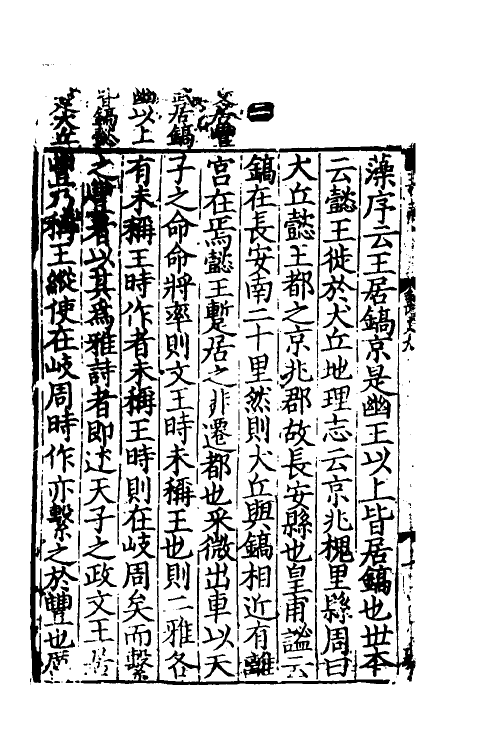 藻序云王居鎬京是幽王以上皆居鎬也世本
云懿王徙於犬丘地理志云京兆槐里縣周曰
犬丘懿王都之京兆郡故長安縣也皇甫謐云
鎬在長安南二十里然則犬丘與鎬相近有離
宮在焉懿王蹔居之非遷都也采薇出車以天
子之命命將率則文王時未稱王也則二雅各
有未稱王時作者未稱王時則在岐周矣而繫
之豐者以其爲雅詩者即述天子之政文王居
豐乃稱王縱使在岐周時作亦繫之於豐也
二
文居豐
武居鎬
幽以上
皆鎬懿
徙犬丘